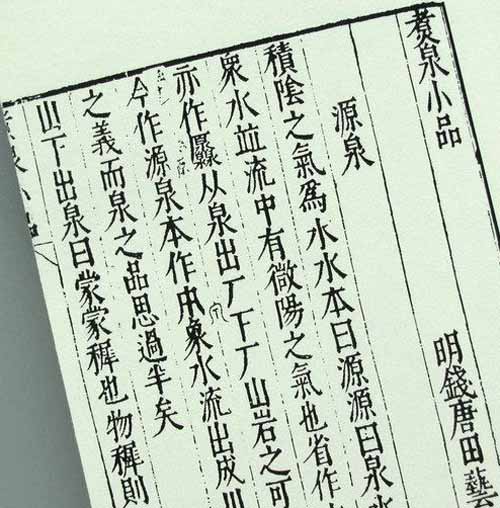 煑泉小品
明錢唐田藝
源泉
積陰之氣爲水水本曰源源曰泉水
衆水並流中有微陽之氣也省作水
亦作厵从泉出厂下厂山岩之可
今作源泉本作象水流出成川
之義而泉之品思過半矣
山下出泉曰蒙蒙穉也物穉則
泉小品